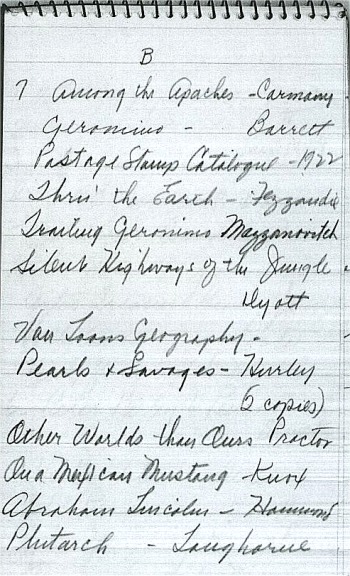 B
? Among the Apaches - Carmany
Geronimo - Barrett
Postage Stamp Catalogue - 1922
Thru' the Earth - Fezzandie
Trailing Geronimo Mazzanovitch
Silent Highways of the Jungle -
Dyott
Van Loons Geography -
Pearls & Savages - Hurley
(2 copies)
Other Worlds than Ours Proctor
On a Mexican Mustang - Knox
Abraham Lincoln - Hammond
Plutarch - Langhorne